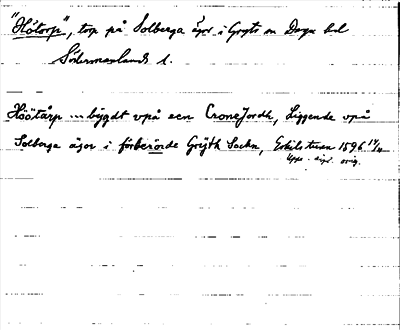 "Hötorp", torp på Solberga ägor i Gryts sn Daga hd
Södermanlands l.
Höötårp ... bÿgdt vpå een CroneJordh, Liggende vpå
Solberga ägor i förberörde Grÿth Sochn, Eskilstuna 1596 14/11
Upps. dipl. orig.